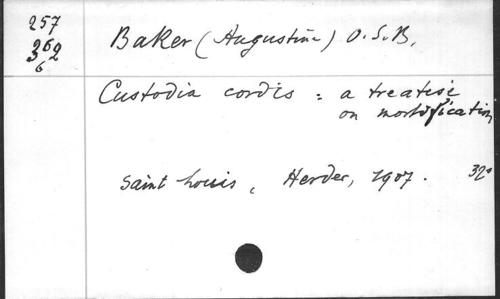 257
362
6
Baker (Augustine) O.S.B.
Custodia cordis : a treatise
on mortification
Saint Louis, Herder, 1907. 32°